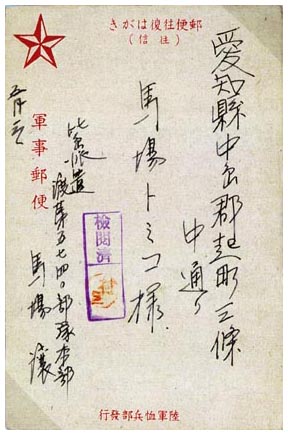 郵便往復はがき
(往信)
愛知縣中島郡起町三條
中通り
馬場トミコ様
軍事郵便
検閲済
派遣
渡第五七四〇部隊本部
馬場
陸軍恤兵部發行